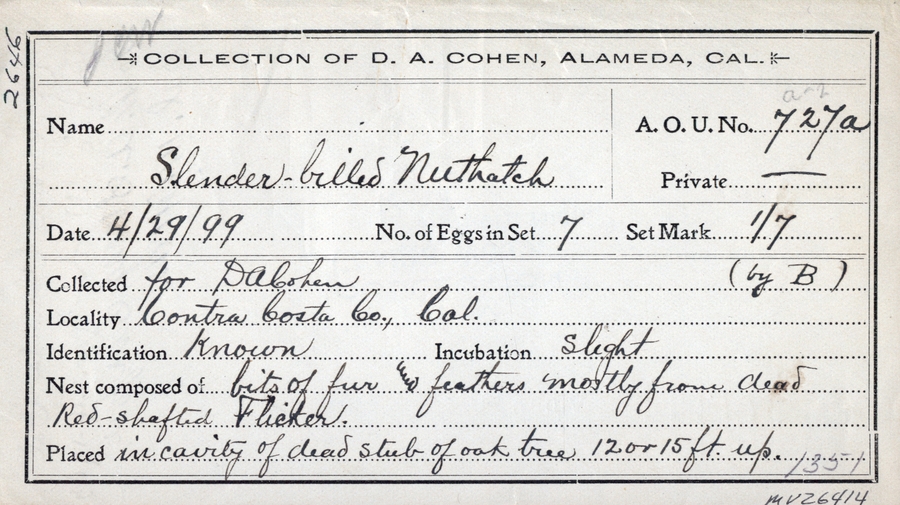 2646
COLLECTION OF D. A. COHEN, ALAMEDA, CAL.
Name
A. O. U. No. 727a
Slender-billed Nuthatch
Private —
Date 4/29/99 No. of Eggs in Set 7 Set Mark 1/7
Collected for DACohen (by B)
Locality Contra Costa Co., Cal.
Identification Known Incubation Slight
Nest composed of bits of fur and feathers mostly from dead
Red-shafted Flicker.
Placed in cavity of dead stub of oak tree 12 or 15 ft. up.
1351
MVZ6414